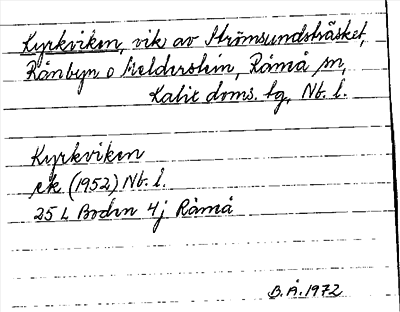 Kyrkviken, vik av Strömsundsträsket,
Rånbyn o Melderstein, Råneå sn,
Kalix doms. tg, Nb. l.
Kyrkviken
ek. (1952) Nb. l.
25 L Boden 4j Råneå
B.Å. 1972